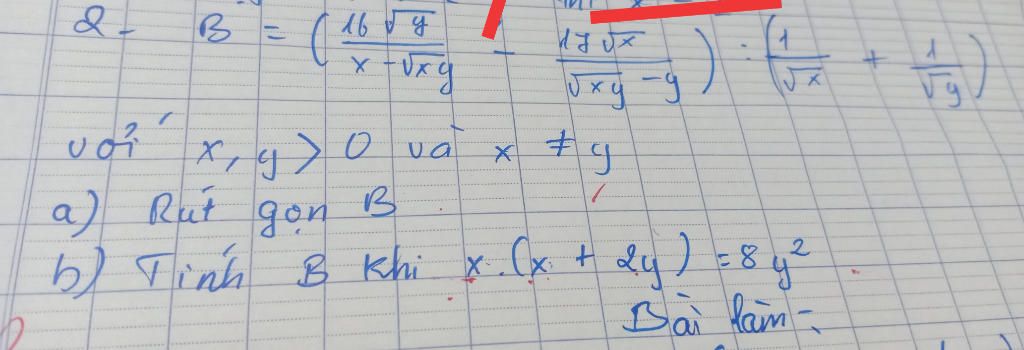 2 - B = (16√y / (x - √xy) - 17√x / (√xy - y)) : (1/√x + 1/√y)
với x, y > 0 và x ≠ y
a) Rút gọn B
b) Tính B khi x.(x + 2y) = 8y²
Bài làm: